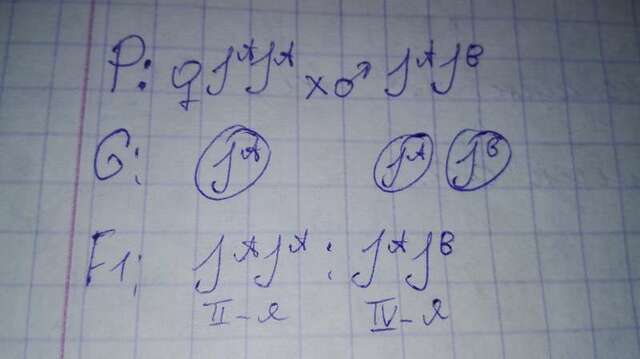 P: ♀ JᴬJᴬ x ♂ JᴬJᴮ
G: Jᴬ Jᴬ Jᴮ
F1: JᴬJᴬ : JᴬJᴮ
II-я IV-я